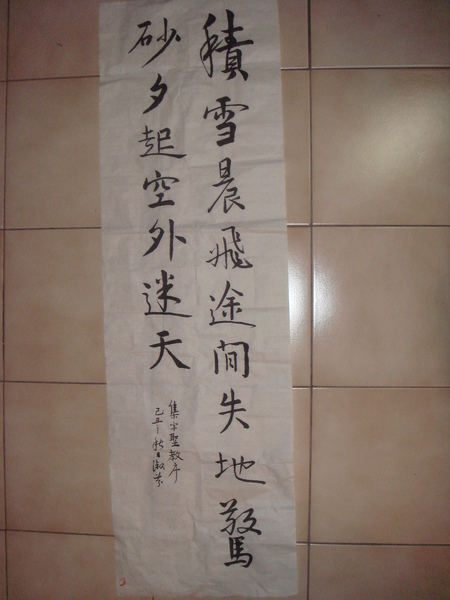 積雪晨飛途間失地驚
砂夕起空外迷天
集字聖教序
己丑秋日淑芬